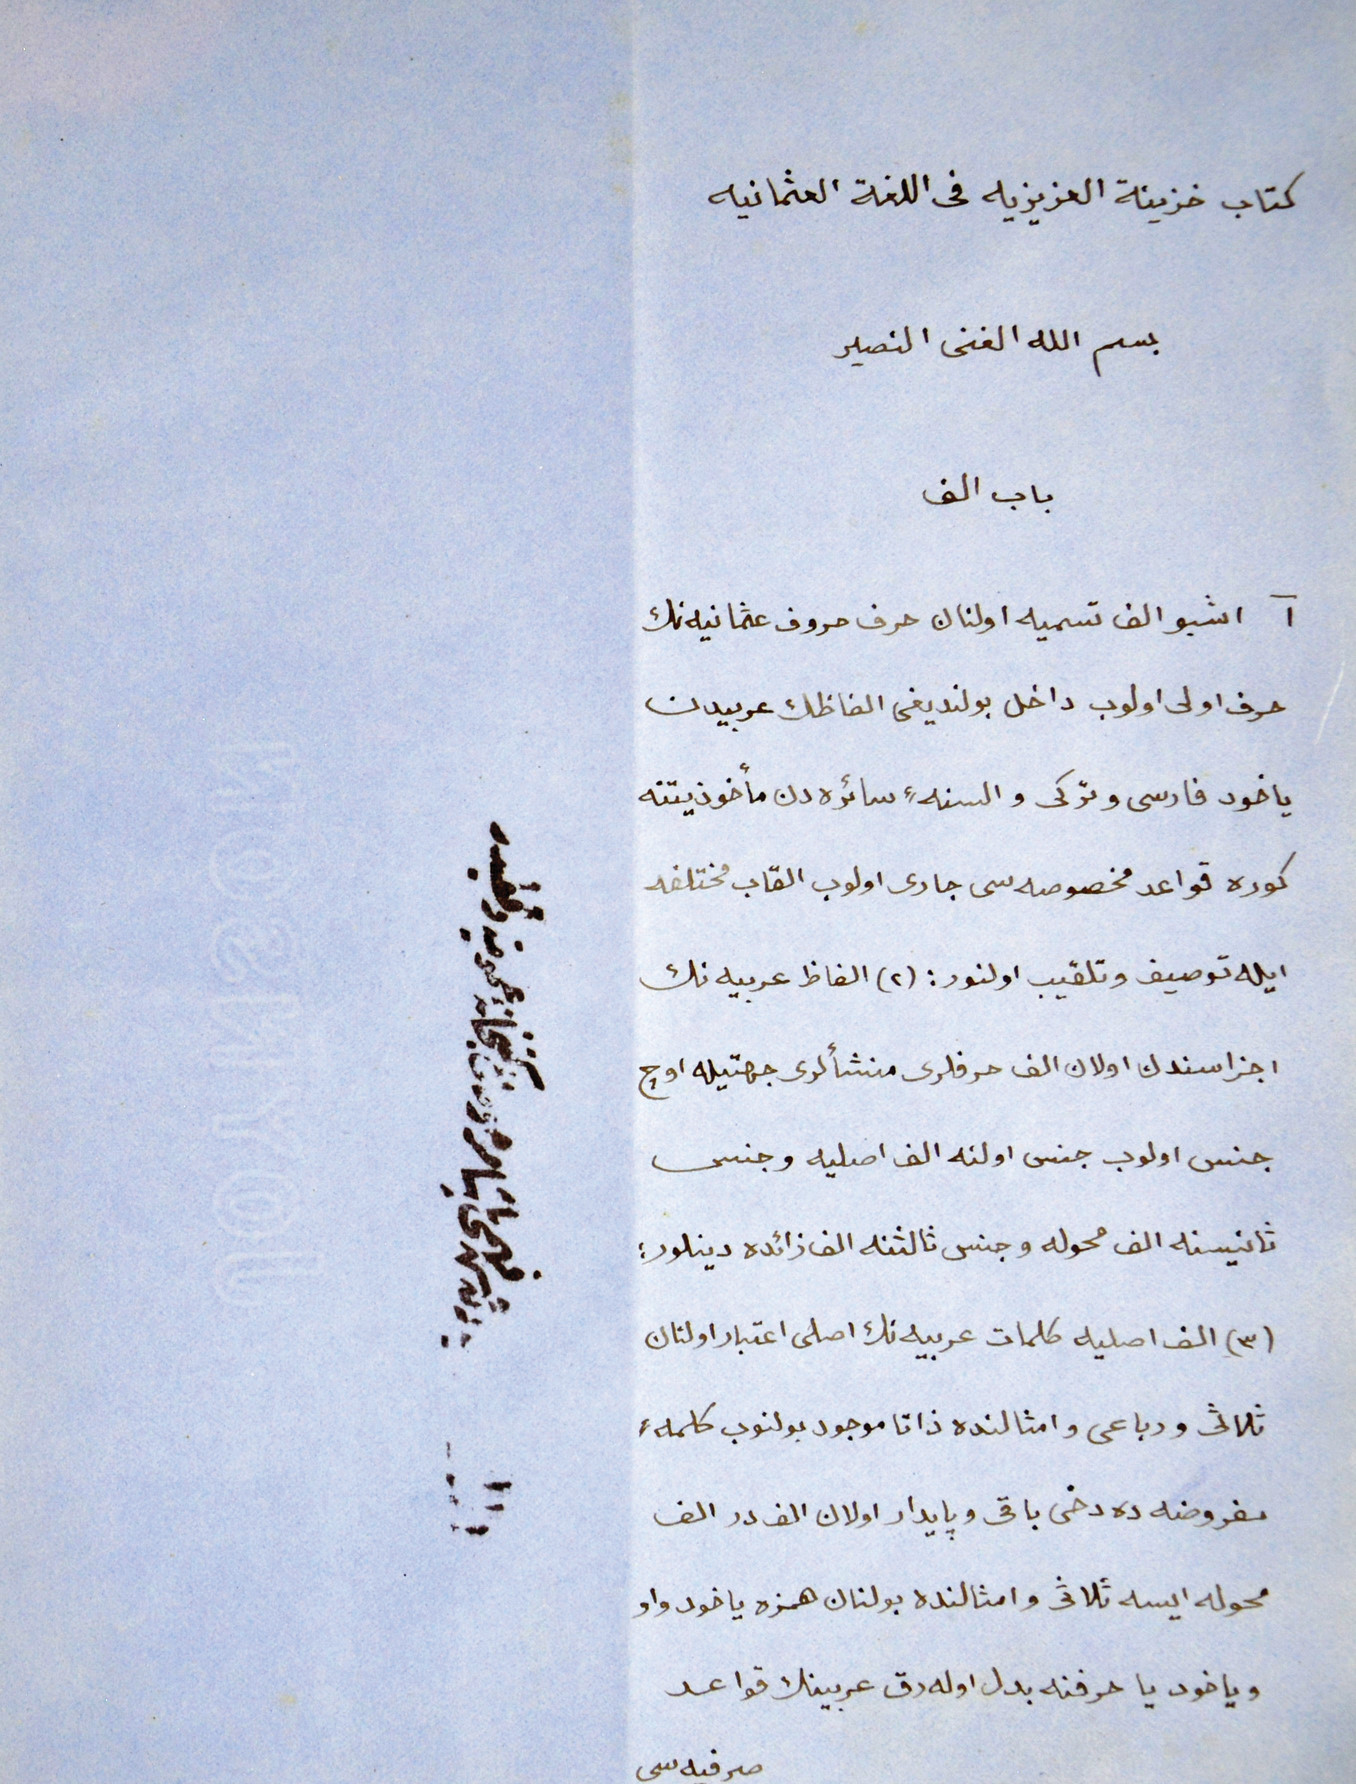 كتاب خزينة العزيزيه فى اللغة العثمانيه
بسم الله الغنى النصير
باب الف
آ اشبو الف تسميه اولنان حرف حروف عثمانيه نك
حرف اولى اولوب داخل بولنديغى الفاظك عربيدن
ياخود فارسى و تركى و السنهٴ سائره دن مأخوذيتنه
كوره قواعد مخصوصه سى جارى اولوب القاب مختلفه
ايله توصيف و تلقيب اولنور : (٢) الفاظ عربيه نك
اجزاسندن اولان الف حرفلرى منشألرى جهتيله اوچ
جنس اولوب جنس اولنه الف اصليه و جنس
ثانيسنه الف محوله و جنس ثالثنه الف زائده دينلور؛
(٣) الف اصليه كلمات عربيه نك اصلى اعتبار اولنان
ثلاثى و رباعى و امثالنده ذاتا موجود بولنوب كلمهٴ
مفروضه ده دخى باقى و پايدار اولان الف در الف
محوله ايسه ثلاثى و امثالنده بولنان همزه ياخود واو
و ياخود يا حرفنه بدل اوله رق عربينك قواعد
صرفيه سى